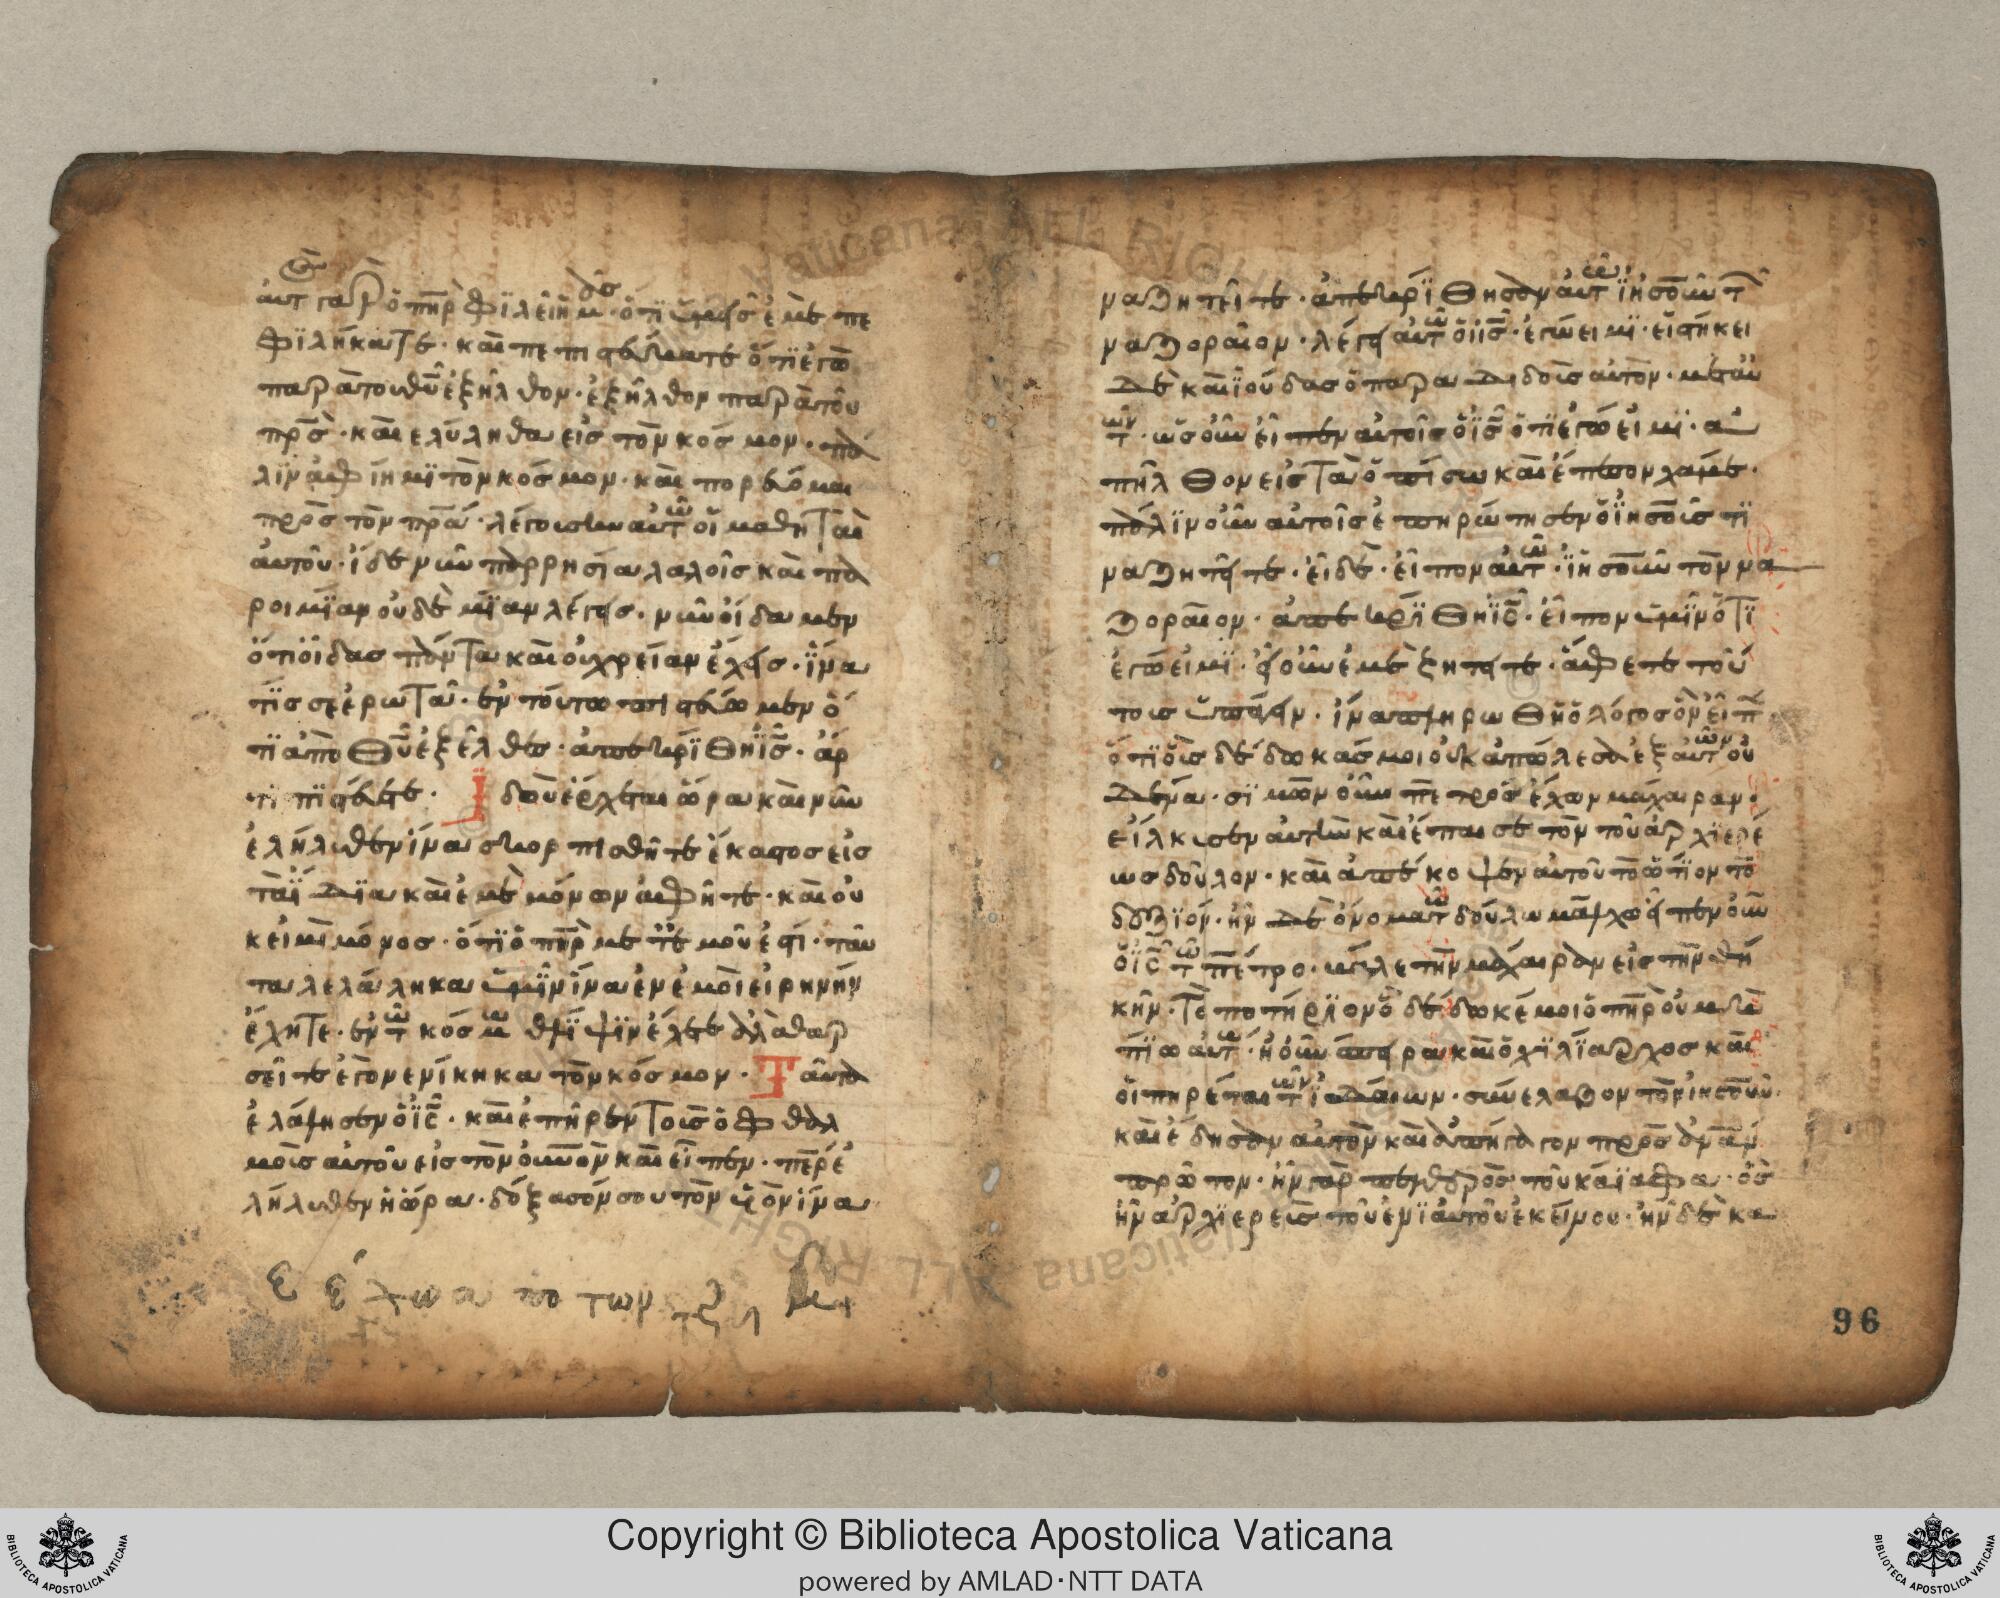 αὐτ γαρ ὁ πηρ φϊλεῖ ἡμ δς· ὅτι ὑμεῖς ἐμὲ πε
φϊλήκατε· καὶ πεπιστεύκατε ὅτι ἐγὼ
παρὰ του θυ ἐξῆλθον· ἐξῆλθον παρὰ τοῦ
πρς· καὶ ελύληθα εἰς τὸν κόσμον· πά
λϊν ἀφίημϊ τὸν κόσμον· καὶ πορεύομαι
πρὸς τὸν πρα· λέγουσιν αὐτω οἱ μαθηταὶ
αὐτοῦ· ἴδε νῦν παρρησία λαλοῖς καὶ πα
ροιμϊαν οὐδὲ μϊαν λέγεις· νῦν οἴδαμεν
ὅτι οἶδας πάντα καὶ οὐ χρείαν ἔχεις· ἵνα
τίς σε ἐρωτᾶ· ἐν τούτω πιστεύωμεν ὅ
τι ἀπὸ θυ ἐξελθες· ἀπεκρϊθη ις· ἄρ
τι πϊστεύετε· Ϊδοὺ ἔρχεται ὥρα καὶ νῦν
ἐλήλυθεν ἵνα σκορπισθῆτε ἕκαστος εἰς
τὰ ἴδϊα καὶ ἐμὲ μόνων ἀφῆτε· καὶ οὐ
κ εἰμὶ μόνος· ὅτι ὁ πηρ με τ ἐμοῦ ἐστί· ταῦ
τα λελάληκα ὑμῖν ἵνα ἐν ἐμοὶ εἰρηνήν
ἔχητε· ἐν τω κόσμω θλίψϊν ἔχετε ἀλλὰ θαρ
σεῖτε ἐγὸ νενίκηκα τὸν κόσμον· Ταῦτα
ἐλάλησεν ὁ ις· καὶ ἐπῆρεν τοὺς ὀφθαλ
μοὺς αὐτοῦ εἰς τὸν οὐνον καὶ εἶπεν· περ ἐ
λήλυθεν ἡ ὥρα· δόξασόν σου τὸν ὑὸν ἵνα
96
μαζητεῖτε· ἀπεκρϊθησαν αὐτ ϊησοῦν τ
ναζοραῖον· λέγει αὐτω ὁ ις· ἐγώ ειμϊ· εἱστήκει
δὲ καὶ ϊούδας ὁ παραδιδοὺς αὐτὸν· μετ αὐ
των· ὡς οὖν εἶπεν αὐτοῖς ὁ ις ὅτι ἐγώ εἰμϊ· α
πῆλθον εἰς τὰ ὀπίσω καὶ ἔπεσον χαμέ·
πάλϊν οὖν αὐτοῖς ἐπηρώτησεν ὁ ϊησοῦς τϊ
ναζητεῖτε· εἰ δὲ· εἶπον αὐτω· ϊησοῦν τὸν να
ζοραῖον· ἀπεκρϊθη ις· εἶπον ὑμῖν ὅτϊ
ἐγώ εἰμϊ· εἰ οὖν ἐμὲ ζητεῖτε· ἄφετε τού
τοις ὑπάγειν· ἵνα πληρωθῆ ὁ λόγος ὃν εἶπ
ὅτι οἷς δέδωκάς μοι οὐκ ἀπώλεσα ἐξ αὐτων οὐ
δένα· σϊμὸν οὖν πε τρος ἔχων μάχαιραν·
εἵλκυσεν αὐτὴν καὶ ἔπαισε τὸν τοῦ ἀρχϊερέ
ως δοῦλον· καὶ ἀπέκοψεν αὐτοῦ τὸ ὠτίον τὸ
δεξϊόν· ἦν δὲ ὄνομα τω δούλω μάλχω εἶπεν οὖν
ὁ ις τω πέτρο· βάλε τὴν μάχαιραν εἰς τὴν θή
κην· τὸ ποτήρϊον ὃ δέδωκέ μοι ὁ πηρ οὐ μὴ
πϊω αὐτω· ἡ οὖν σπεῖρα καὶ ὁ χϊλϊαρχος καὶ
οἱ πηρέται των ϊουδαίων· συνέλαβον τὸν ϊησοῦν·
καὶ ἔδησαν αὐτὸν καὶ ἀπήγαγον πρὸς ἄνναν
πρῶτον· ἦν γὰρ πενθερὸς τοῦ καϊαφα· ὃς
ἦν ἀρχϊερεὺς τοῦ ἐνϊαυτοῦ ἐκείνου· ἦν δὲ κα
Copyright © Biblioteca Apostolica Vaticana
powered by AMLAD·NTT DATA
BIBLIOTECA APOSTOLICA VATICANA
BIBLIOTECA APOSTOLICA VATICANA